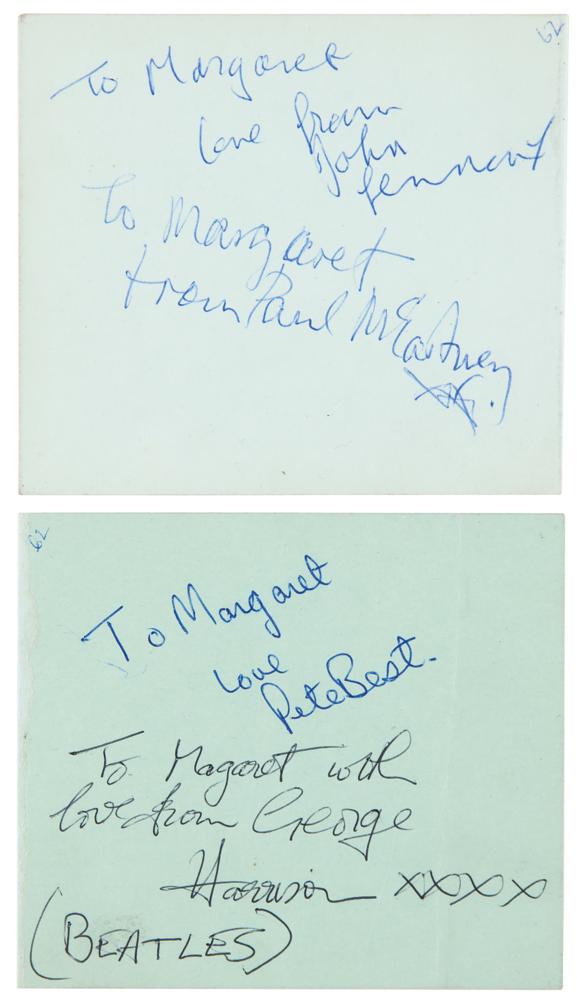 62
To Margaret
love from
John
Lennon X
To Margaret
from Paul McCartney
62
To Margaret
love
Pete Best.
To Magaret with
love from George
Harrison xxxx
(BEATLES)